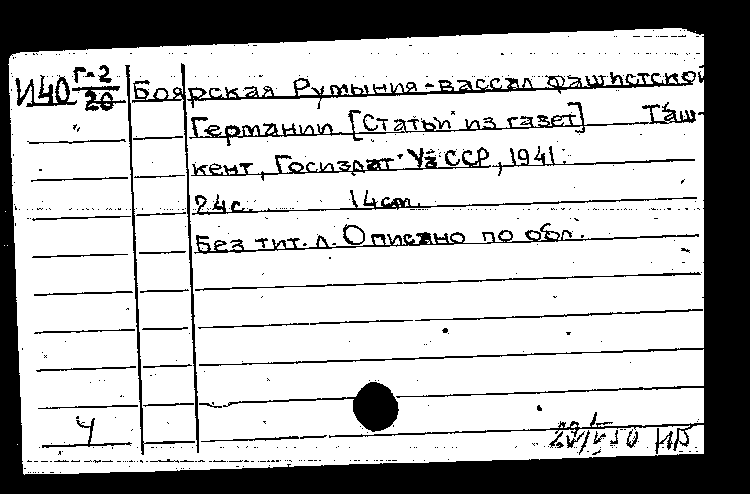 И40 Г-2/20 Боярская Румыния-вассал фашистской
" Германии [Статьи из газет] Таш-
кент, Госиздат УзССР, 1941.
24с. 14cm.
Без тит. л. Описано по обл.
4